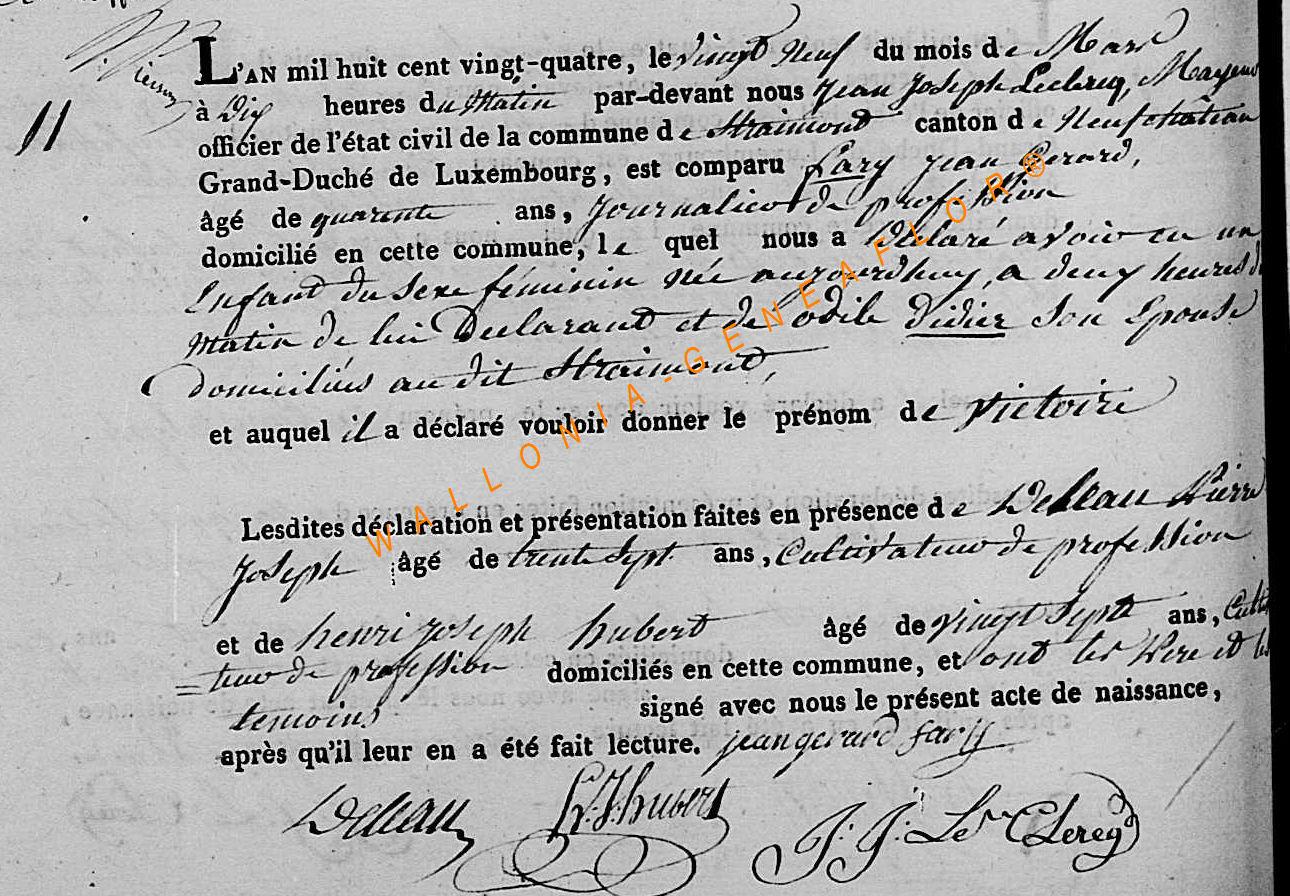 11
L'AN mil huit cent vingt-quatre, le vingt Neuf du mois de Mars
à Dix heures du Matin par-devant nous Jean Joseph Leclercq, Mayeur
officier de l'état civil de la commune de Straimont canton de Neufchâteau
Grand-Duché de Luxembourg, est comparu Fary Jean Gerard,
âgé de quarente ans, Journalier de profession
domicilié en cette commune, le quel nous a Déclaré avoir eu un
Enfant du sexe féminin née aujourdhuy, a deux heures du
Matin de lui Declarant et de odile Didier Son Epouse
domiciliés au dit Straimont,
et auquel il a déclaré vouloir donner le prénom de Victoire
Lesdites déclaration et présentation faites en présence de Deleau Pierre
Joseph âgé de trente Sept ans, Cultivateur de profession
et de henri joseph hubert âgé de vingt Sept ans, Culti
=teur de profession domiciliés en cette commune, et ont les Pere et les
temoins signé avec nous le présent acte de naissance,
après qu'il leur en a été fait lecture. jean gerard farij
Deleau h. J. hubert J: J: Le Clercq
WALLONIA-GENEAFLOR®